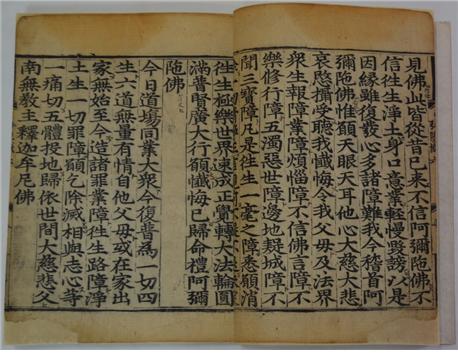 見佛此皆從昔已來不信阿彌陁佛不
信徃生淨土身口意業輕慢毀謗以是
因緣雖復發心多諸障難我今稽首阿
彌陁佛惟願天眼天耳他心大慈大悲
哀愍攝受聽我懺悔令我父母及法界
衆生報障業障煩惱障不信佛言障不
樂修行障五濁惡世障邊地疑城障不
聞三寶障凡是徃生一毫之障悉願消
徃生極樂世界速成正覺轉大法輪圓
滿普賢廣大行願懺悔已歸命禮阿彌
陁佛
今日道場同業大衆今復普為一切四
生六道無量有情自他父母或在家出
家無始至今造諸罪業障徃生路障淨
土生一切罪障願乞除滅相與志心等
一痛切五體投地歸依世間大慈悲父
南無敎主釋迦牟尼佛